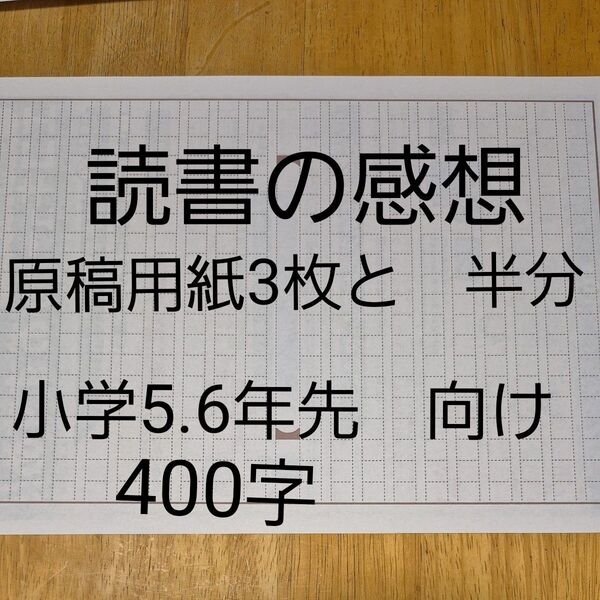 読書の感想
原稿用紙3枚と　半分
小学5.6年先　向け
400字